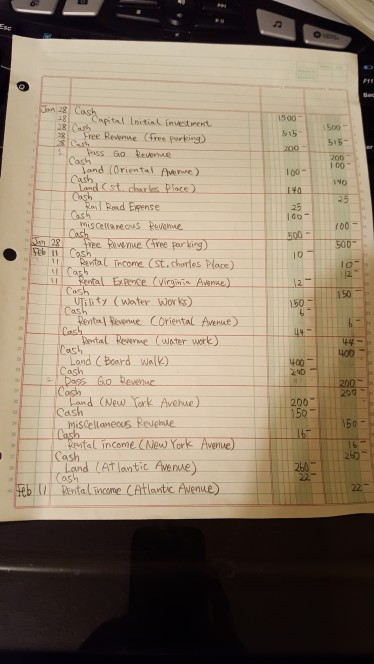 Jan 28 Cash 1500-
28 Capital Initial investment 1500-
28 Cash 515-
28 Free Revenue (free parking) 515-
28 Cash 200
Pass Go Revenue 200
Cash 100-
Land (Oriental Avenue) 100-
Cash 140
Land (St. charles Place) 140
Cash 25
Rail Road Expense 25
Cash 100-
miscellaneous Revenue 100-
Cash 500-
Jan 28 free Revenue (free parking) 500-
Feb 11 Cash 10-
11 Rental Income (St. charles Place) 10-
11 Cash 12-
11 Rental Expence (Virginia Avenue) 12-
Cash 150
Utility (Water Works) 150-
Cash 6-
Rental Revenue (Oriental Avenue) 6-
Cash 44-
Rental Revenue (water work) 44-
Cash 400
Land (Board walk) 400-
Cash
2 Pass Go Revenue 200-
Cash 200
Land (New York Avenue) 200-
Cash 150-
miscellaneous Revenue 150-
Cash 16-
Rental income (New York Avenue) 16-
Cash 260-
Land (Atlantic Avenue) 260-
Cash 22-
Feb 11 Rental income (Atlantic Avenue) 22-
Esc